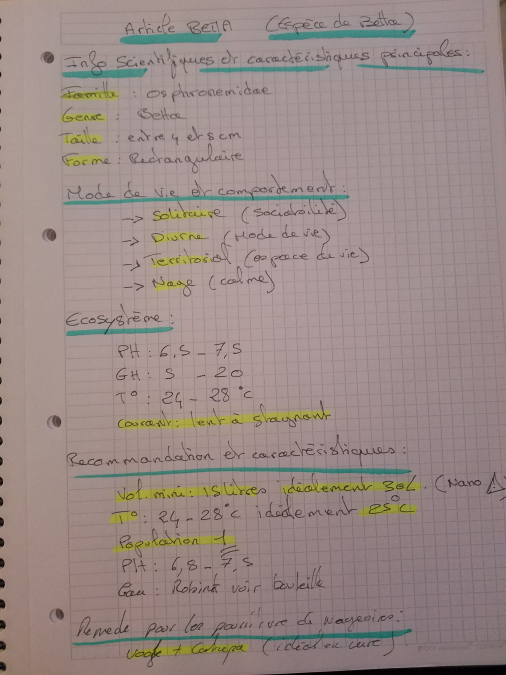 Article BettA (Espèce de Betta)
Info Scientifiques et caractéristiques principales :
Famille : osphronemidae
Genre : Betta
Taille : entre 4 et 8 cm
Forme : Rectangulaire
Mode de vie et comportement :
-> Solitaire (Sociabilité)
-> Diurne (Mode de vie)
-> Territorial (espace de vie)
-> Nage (calme)
Ecosystème :
PH : 6,5 - 7,5
GH : 5 - 20
T° : 24 - 28 °c
Courant : lent à stagnant
Recommandation et caractéristiques :
Vol mini : 15 litres idéalement 30L. (Nano
T° : 24 - 28°c idéalement 25°c
Population 1
PH : 6,8 - 7,5
Eau : Robinet voir bouteille
Remede pour les pourriture de nageoires :
+ Catappa (idéal en cure)